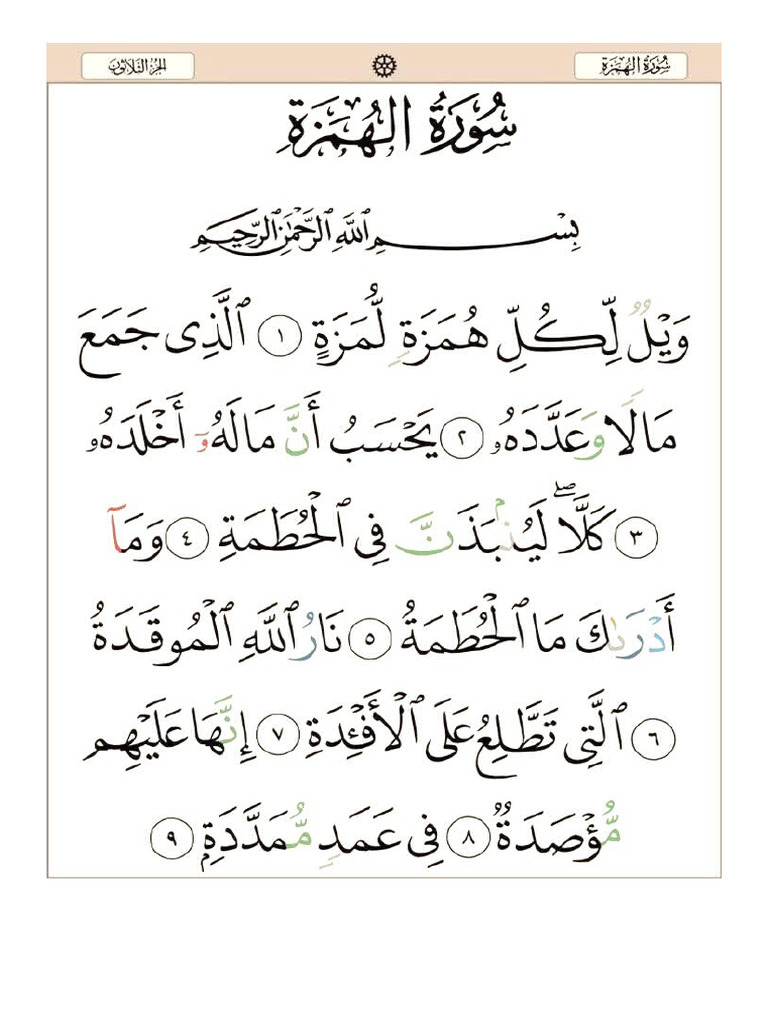 سُورَةُ الهُمَزَةِ
الجُزْءُ الثَّلَاثُونَ
سُورَةُ الهُمَزَةِ
بِسْمِ ٱللَّهِ ٱلرَّحْمَٰنِ ٱلرَّحِيمِ
وَيْلٌ لِّكُلِّ هُمَزَةٍ لُّمَزَةٍ ١ ٱلَّذِى جَمَعَ
مَالًا وَعَدَّدَهُۥ ٢ يَحْسَبُ أَنَّ مَالَهُۥٓ أَخْلَدَهُۥ
٣ كَلَّاۖ لَيُنۢبَذَنَّ فِى ٱلْحُطَمَةِ ٤ وَمَآ
أَدْرَىٰكَ مَا ٱلْحُطَمَةُ ٥ نَارُ ٱللَّهِ ٱلْمُوقَدَةُ
٦ ٱلَّتِى تَطَّلِعُ عَلَى ٱلْأَفْـِٔدَةِ ٧ إِنَّهَا عَلَيْهِم
مُّؤْصَدَةٌ ٨ فِى عَمَدٍ مُّمَدَّدَةٍۭ ٩